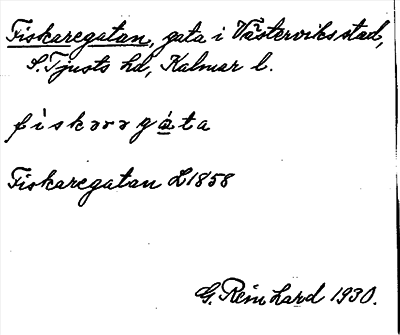 Fiskaregatan, gata i Västerviks stad,
S. Tjusts hd, Kalmar l.
fìskərəgáta
Fiskaregatan L 1858
G. Reinhard 1930.